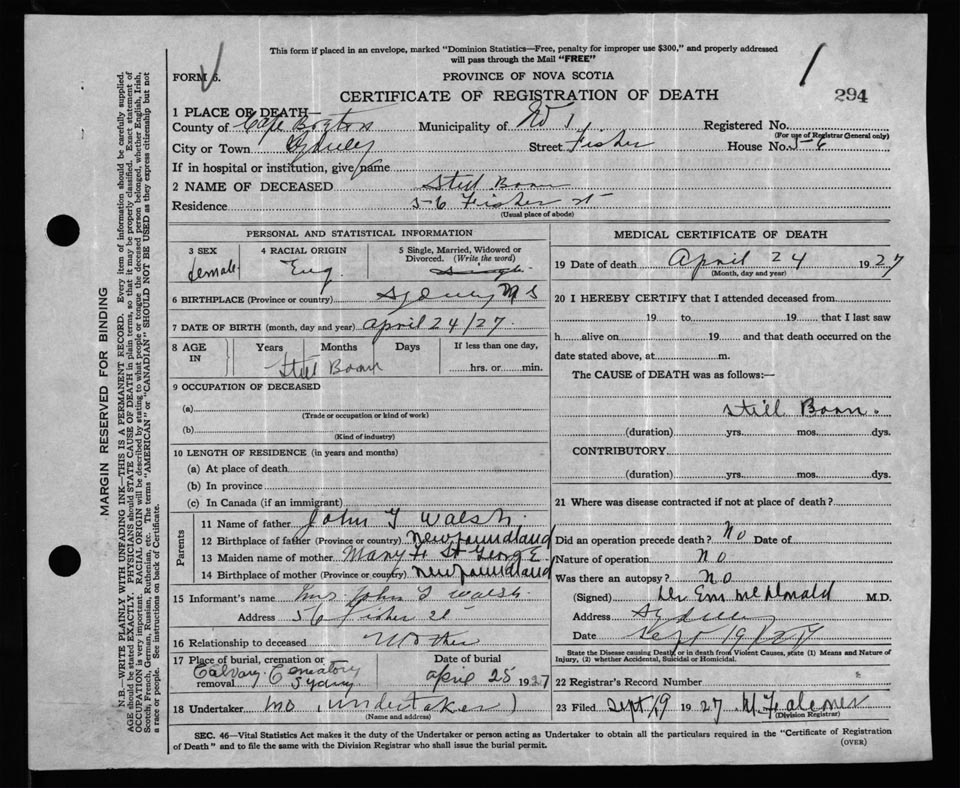 This form if placed in an envelope, marked "Dominion Statistics—Free, penalty for improper use $300," and properly addressed
will pass through the Mail "FREE"
FORM 6.
PROVINCE OF NOVA SCOTIA
CERTIFICATE OF REGISTRATION OF DEATH
294
1 PLACE OF DEATH—
County of Cape Breton Municipality of Wd 1 Registered No.
(For use of Registrar General only)
City or Town Sydney Street Fisher House No. 56
If in hospital or institution, give name
2 NAME OF DECEASED Still Born
Residence 56 Fisher st
(Usual place of abode)
PERSONAL AND STATISTICAL INFORMATION
3 SEX 4 RACIAL ORIGIN 5 Single, Married, Widowed or
Divorced. (Write the word)
female Eng. Single
6 BIRTHPLACE (Province or country) Sydney N S
7 DATE OF BIRTH (month, day and year) April 24/27.
8 AGE IN Years Months Days If less than one day,
Still Born hrs. or min.
9 OCCUPATION OF DECEASED
(a)
(Trade or occupation or kind of work)
(b)
(Kind of industry)
10 LENGTH OF RESIDENCE (in years and months)
(a) At place of death
(b) In province
(c) In Canada (if an immigrant)
Parents
11 Name of father John T Walsh.
12 Birthplace of father (Province or country) Newfoundland
13 Maiden name of mother Mary St George
14 Birthplace of mother (Province or country) Newfoundland
15 Informant's name Mrs John T Walsh.
Address 56 Fisher St
16 Relationship to deceased Mother
17 Place of burial, cremation or removal Calvary Cematory Sydney
Date of burial April 25 1927
18 Undertaker no (undertaker)
(Name and address)
MEDICAL CERTIFICATE OF DEATH
19 Date of death April 24 1927
(Month, day and year)
20 I HEREBY CERTIFY that I attended deceased from
19 to 19 that I last saw
h alive on 19 and that death occurred on the
date stated above, at m.
The CAUSE of DEATH was as follows:—
Still Born.
(duration) yrs. mos. dys.
CONTRIBUTORY
(duration) yrs. mos. dys.
21 Where was disease contracted if not at place of death?
Did an operation precede death? No Date of
Nature of operation No
Was there an autopsy? No
(Signed) Dr Em McDonald M.D.
Address Sydney
Date Sept 19 1927
State the Disease causing Death, or in death from Violent Causes, state (1) Means and Nature of
Injury, (2) whether Accidental, Suicidal or Homicidal.
22 Registrar's Record Number
23 Filed Sept 19 1927 Falconer
(Division Registrar)
SEC. 46—Vital Statistics Act makes it the duty of the Undertaker or person acting as Undertaker to obtain all the particulars required in the "Certificate of Registration
of Death" and to file the same with the Division Registrar who shall issue the burial permit.
(OVER)
MARGIN RESERVED FOR BINDING
N.B.—WRITE PLAINLY WITH UNFADING INK—THIS IS A PERMANENT RECORD. Every item of information should be carefully supplied.
AGE should be stated EXACTLY. PHYSICIANS should STATE CAUSE OF DEATH in plain terms, so that it may be properly classified. Exact statement of
OCCUPATION is very important. RACIAL ORIGIN will be described by stating to what people or tongue the deceased person belonged, whether English, Irish,
Scotch, French, German, Russian, Ruthenian, etc. The terms "AMERICAN" or "CANADIAN" SHOULD NOT BE USED as they express citizenship but not
a race or people. See instructions on back of Certificate.